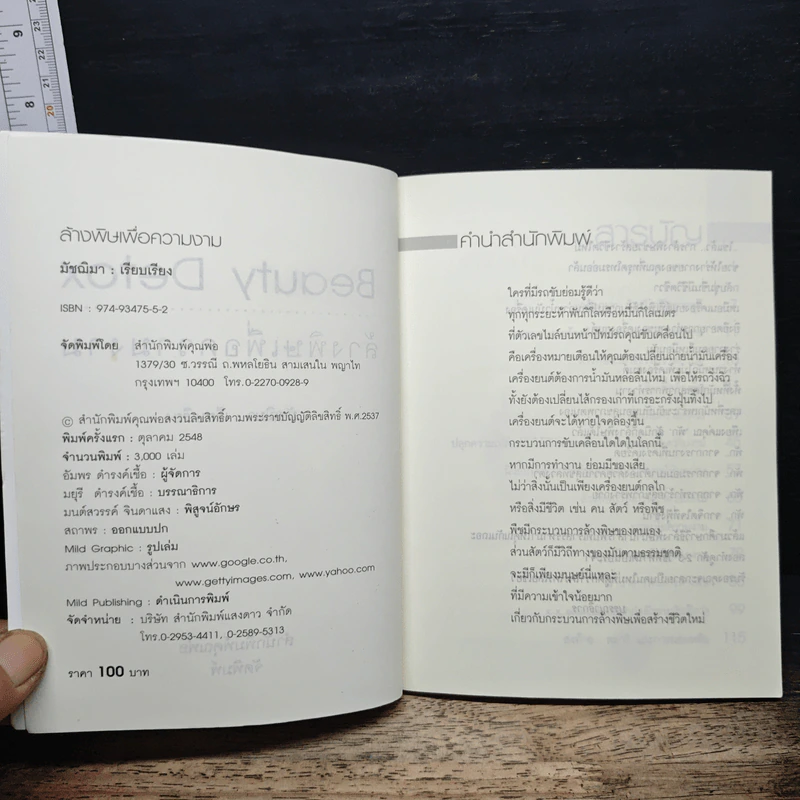 ล้างพิษเพื่อความงาม
มัชฌิมา : เรียบเรียง
ISBN : 974-93475-5-2
จัดพิมพ์โดย สำนักพิมพ์คุณพ่อ
1379/30 ซ.วรรณี ถ.พหลโยธิน สามเสนใน พญาไท
กรุงเทพฯ 10400 โทร.0-2270-0928-9
© สำนักพิมพ์คุณพ่อสงวนลิขสิทธิ์ตามพระราชบัญญัติลิขสิทธิ์ พ.ศ.2537
พิมพ์ครั้งแรก : ตุลาคม 2548
จำนวนพิมพ์ : 3,000 เล่ม
อัมพร ดำรงค์เชื้อ : ผู้จัดการ
มยุรี ดำรงค์เชื้อ : บรรณาธิการ
มนต์สวรรค์ จินดาแสง : พิสูจน์อักษร
สถาพร : ออกแบบปก
Mild Graphic : รูปเล่ม
ภาพประกอบบางส่วนจาก www.google.co.th,
www.gettyimages.com, www.yahoo.com
Mild Publishing : ดำเนินการพิมพ์
จัดจำหน่าย : บริษัท สำนักพิมพ์แสงดาว จำกัด
โทร.0-2953-4411, 0-2589-5313
ราคา 100 บาท
คำนำสำนักพิมพ์
ใครที่มีรถขับย่อมรู้ดีว่า
ทุกทุกระยะห้าพันกิโลหรือหมื่นกิโลเมตร
ที่ตัวเลขไมล์บนหน้าปัทมีรถคุณขับเคลื่อนไป
คือเครื่องหมายเตือนให้คุณต้องเปลี่ยนถ่ายน้ำมันเครื่อง
เครื่องยนต์ต้องการน้ำมันหล่อลื่นใหม่ เพื่อให้รถวิ่งฉิว
ทั้งยังต้องเปลี่ยนไส้กรองเก่าที่เกรอะกรังฝุ่นทิ้งไป
เครื่องยนต์จะได้หายใจคล่องขึ้น
กระบวนการขับเคลื่อนใดใดในโลกนี้
หากมีการทำงาน ย่อมมีของเสีย
ไม่ว่าสิ่งนั้นเป็นเพียงเครื่องยนต์กลไก
หรือสิ่งมีชีวิต เช่น คน สัตว์ หรือพืช
พืชมีกระบวนการล้างพิษของตนเอง
ส่วนสัตว์ก็มีวิถีทางของมันตามธรรมชาติ
จะมีก็เพียงมนุษย์นี่แหละ
ที่มีความเข้าใจน้อยมาก
เกี่ยวกับกระบวนการล้างพิษเพื่อสร้างชีวิตใหม่
9
8
23
22
21
20